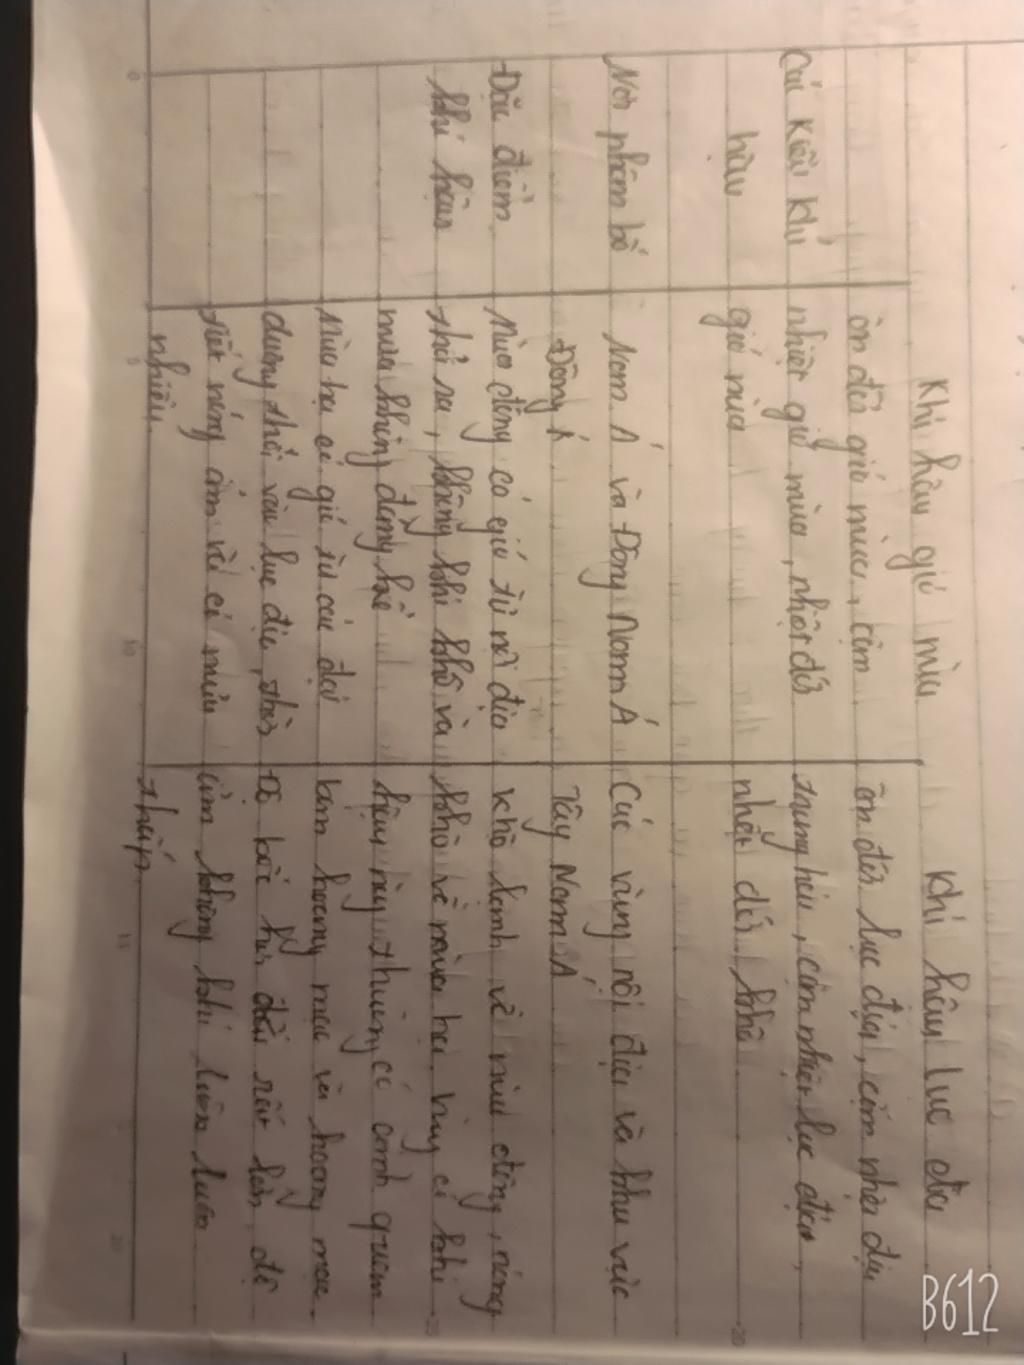 Khí hậu gió mùa
Khí hậu lục địa
Các kiểu khí
hậu
ôn đới gió mùa, cận
nhiệt gió mùa, nhiệt đới
gió mùa
ôn đới lục địa, cận nhiệt địa
trung hải, cận nhiệt lục địa,
nhiệt đới khô.
Nơi phân bố
Nam Á và Đông Nam Á
Đông Á
Các vùng nội địa và khu vực
Tây Nam Á
Đặc điểm
khí hậu
Mùa đông có gió từ nội địa
thổi ra, không khí khô và
mưa không đáng kể
Mùa hạ có gió từ các đại
dương thổi vào lục địa, thời
tiết nóng ẩm và có mưa
nhiều.
khô lạnh về mùa đông, nóng
khô về mùa hạ. Vùng có khí
hậu này thường có cảnh quan
bán hoang mạc và hoang mạc.
Độ bốc hơi rất lớn, độ
ẩm không khí luôn luôn
thấp.
B612